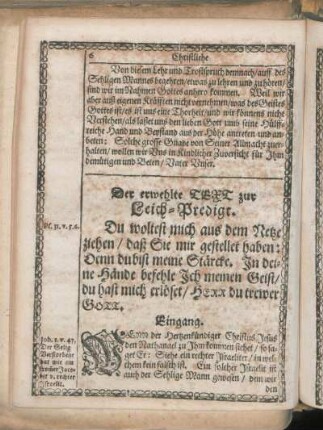 6 Christliche
Von diesem Lehr und Trostspruch demnach/ auff des
Sehligen Mannes begehren/ etwas zu lehren und zu hören/
sind wir im Nahmen Gottes anhero kommen. Weil wir
aber auß eigenen Kräfften nicht vernehmen/ was des Geistes
Gottes ist/ es ist uns eine Thorheit/ und wir können es nicht
Verstehen/ als lasset uns den lieben Gott umb seine Hülff-
reiche Hand und Beystand aus der Höhe anreten und an-
beten: Solche grosse Gnade von Seiner Allmacht zuer-
halten/ wollen wir Uns in kindlicher Zuversicht für Ihm
demütigen und Beten/ Vater Unser.
Der erwehlte TEXT zur
Leich-Predigt.
Ps. 31. v. 5. 6.
Du woltest mich aus dem Netze
ziehen/ daß Sie mir gestellet haben:
Denn du bist meine Stärcke. In dei-
ne Hände befehle Ich meinen Geist/
du hast mich erlöset/ HERR du trewer
GOTT.
Eingang.
Joh. 1. v. 47.
Der Selig
Verstorbene
war wie ein
v. rechter
Israelit.
Wenn der Hertzenkündiger Christus Jesus
den Nathanael zu Ihm kommen siehet/ so sa-
get Er: Siehe ein rechter Israeliter/ in wel-
chem kein falsch ist. Ein solcher Israelit ist
auch der Sehlige Mann gewesen/ dem wir
den